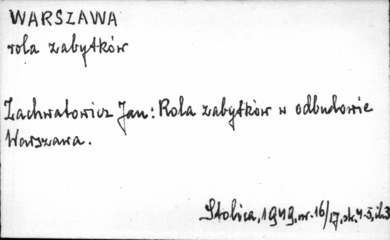 WARSZAWA
rola zabytków
Zachwatowicz Jan: Rola zabytków w odbudowie
Warszawa.
Stolica, 1949, nr. 16/17, sk. 4-5, il. 3